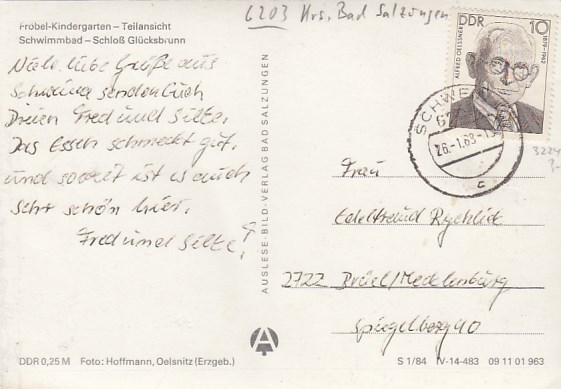 Fröbel-Kindergarten – Teilansicht
Schwimmbad – Schloß Glücksbrunn
6203 Krs. Bad Salzungen
Viele liebe Grüße aus
Schweina senden Euch
Dreien Fred und Silke.
Das Essen schmeckt gut,
und soweit ist es auch
sehr schön hier.
Fred und Silke!
AUSLESE-BILD-VERLAG BAD SALZUNGEN
DDR 10
ALFRED OELSSNER 1879-1962
SCHWEINA
c
3224
Frau
Edeltraud Rychlik
2722 Brüel/Mecklenburg
Spiegelberg 40
A
DDR 0,25 M Foto: Hoffmann, Oelsnitz (Erzgeb.)
S 1/84 IV-14-483 09 11 01 963